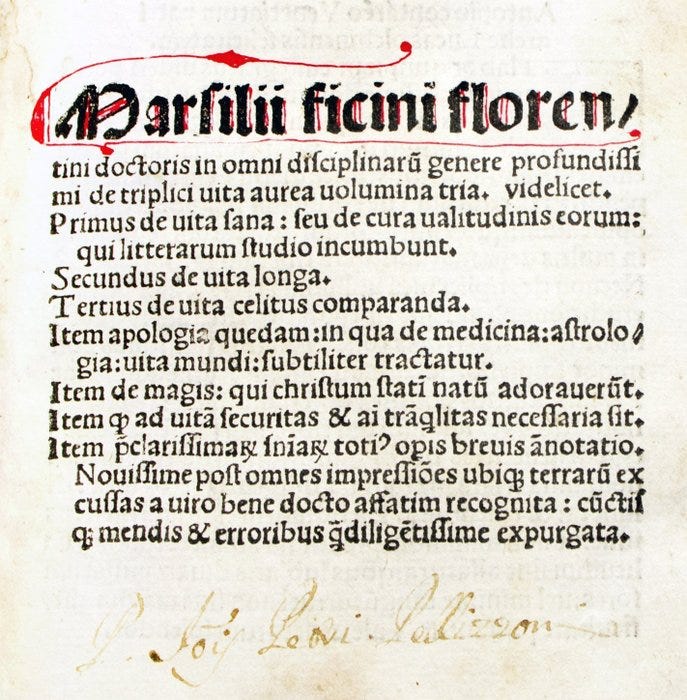 Marsilii ficini floren/
tini doctoris in omni disciplinarū genere profundissi
mi de triplici uita aurea uolumina tria. videlicet.
Primus de uita sana: seu de cura ualitudinis eorum:
qui litterarum studio incumbunt.
Secundus de uita longa.
Tertius de uita celitus comparanda.
Item apologia quedam:in qua de medicina:astrolo/
gia:uita mundi:subtiliter tractatur.
Item de magis: qui christum statī natū adorauerūt.
Item ꝙ ad uitā securitas & aī trāq̄litas necessaria sit.
Item p̄clarissimaꝝ sn̄iaꝝ totiꝰ oꝑis breuis ānotatio.
Nouissime post omnes impressiōes ubiqꝫ terrarū ex
cussas a uiro bene docto affatim recognita: cūctis
qꝫ mendis & erroribus q̄diligētissime expurgata.